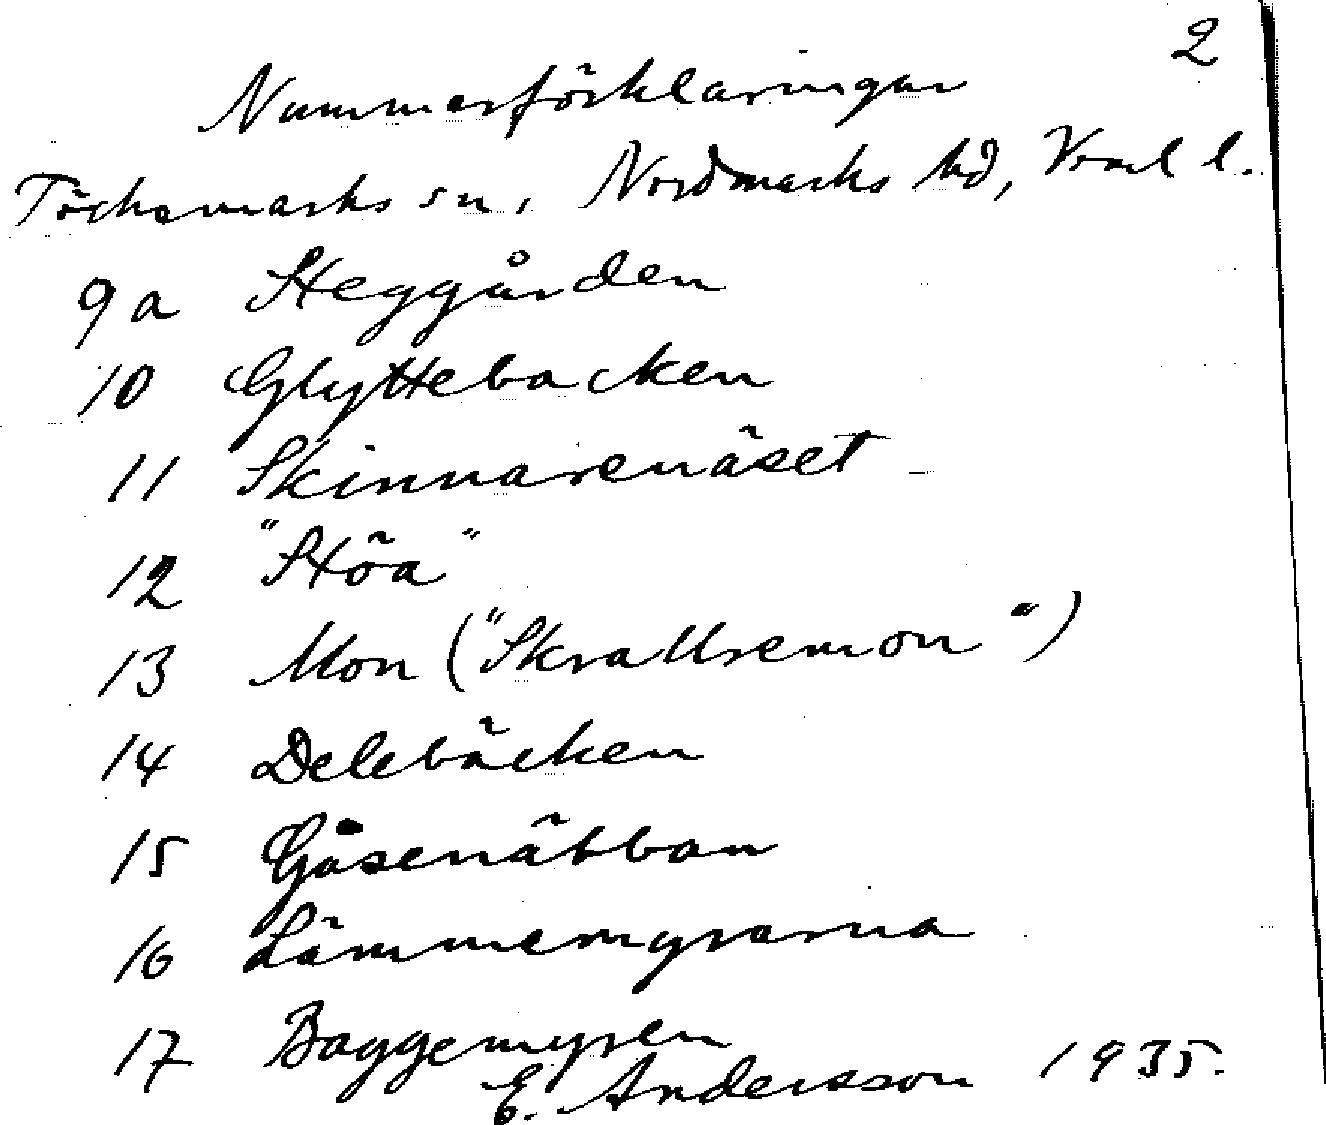 2
Nummerförklaringar
Töcksmarks sn, Nordmarks hd, Vrml l.
9a Steggården
10 Glyttebacken
11 Skinnarenäset
12 "Stöa"
13 Mon ("Skrallremon")
14 Delebäcken
15 Gåsenäbban
16 Lämmemyrarna
17 Baggemyren
E. Andersson 1935.